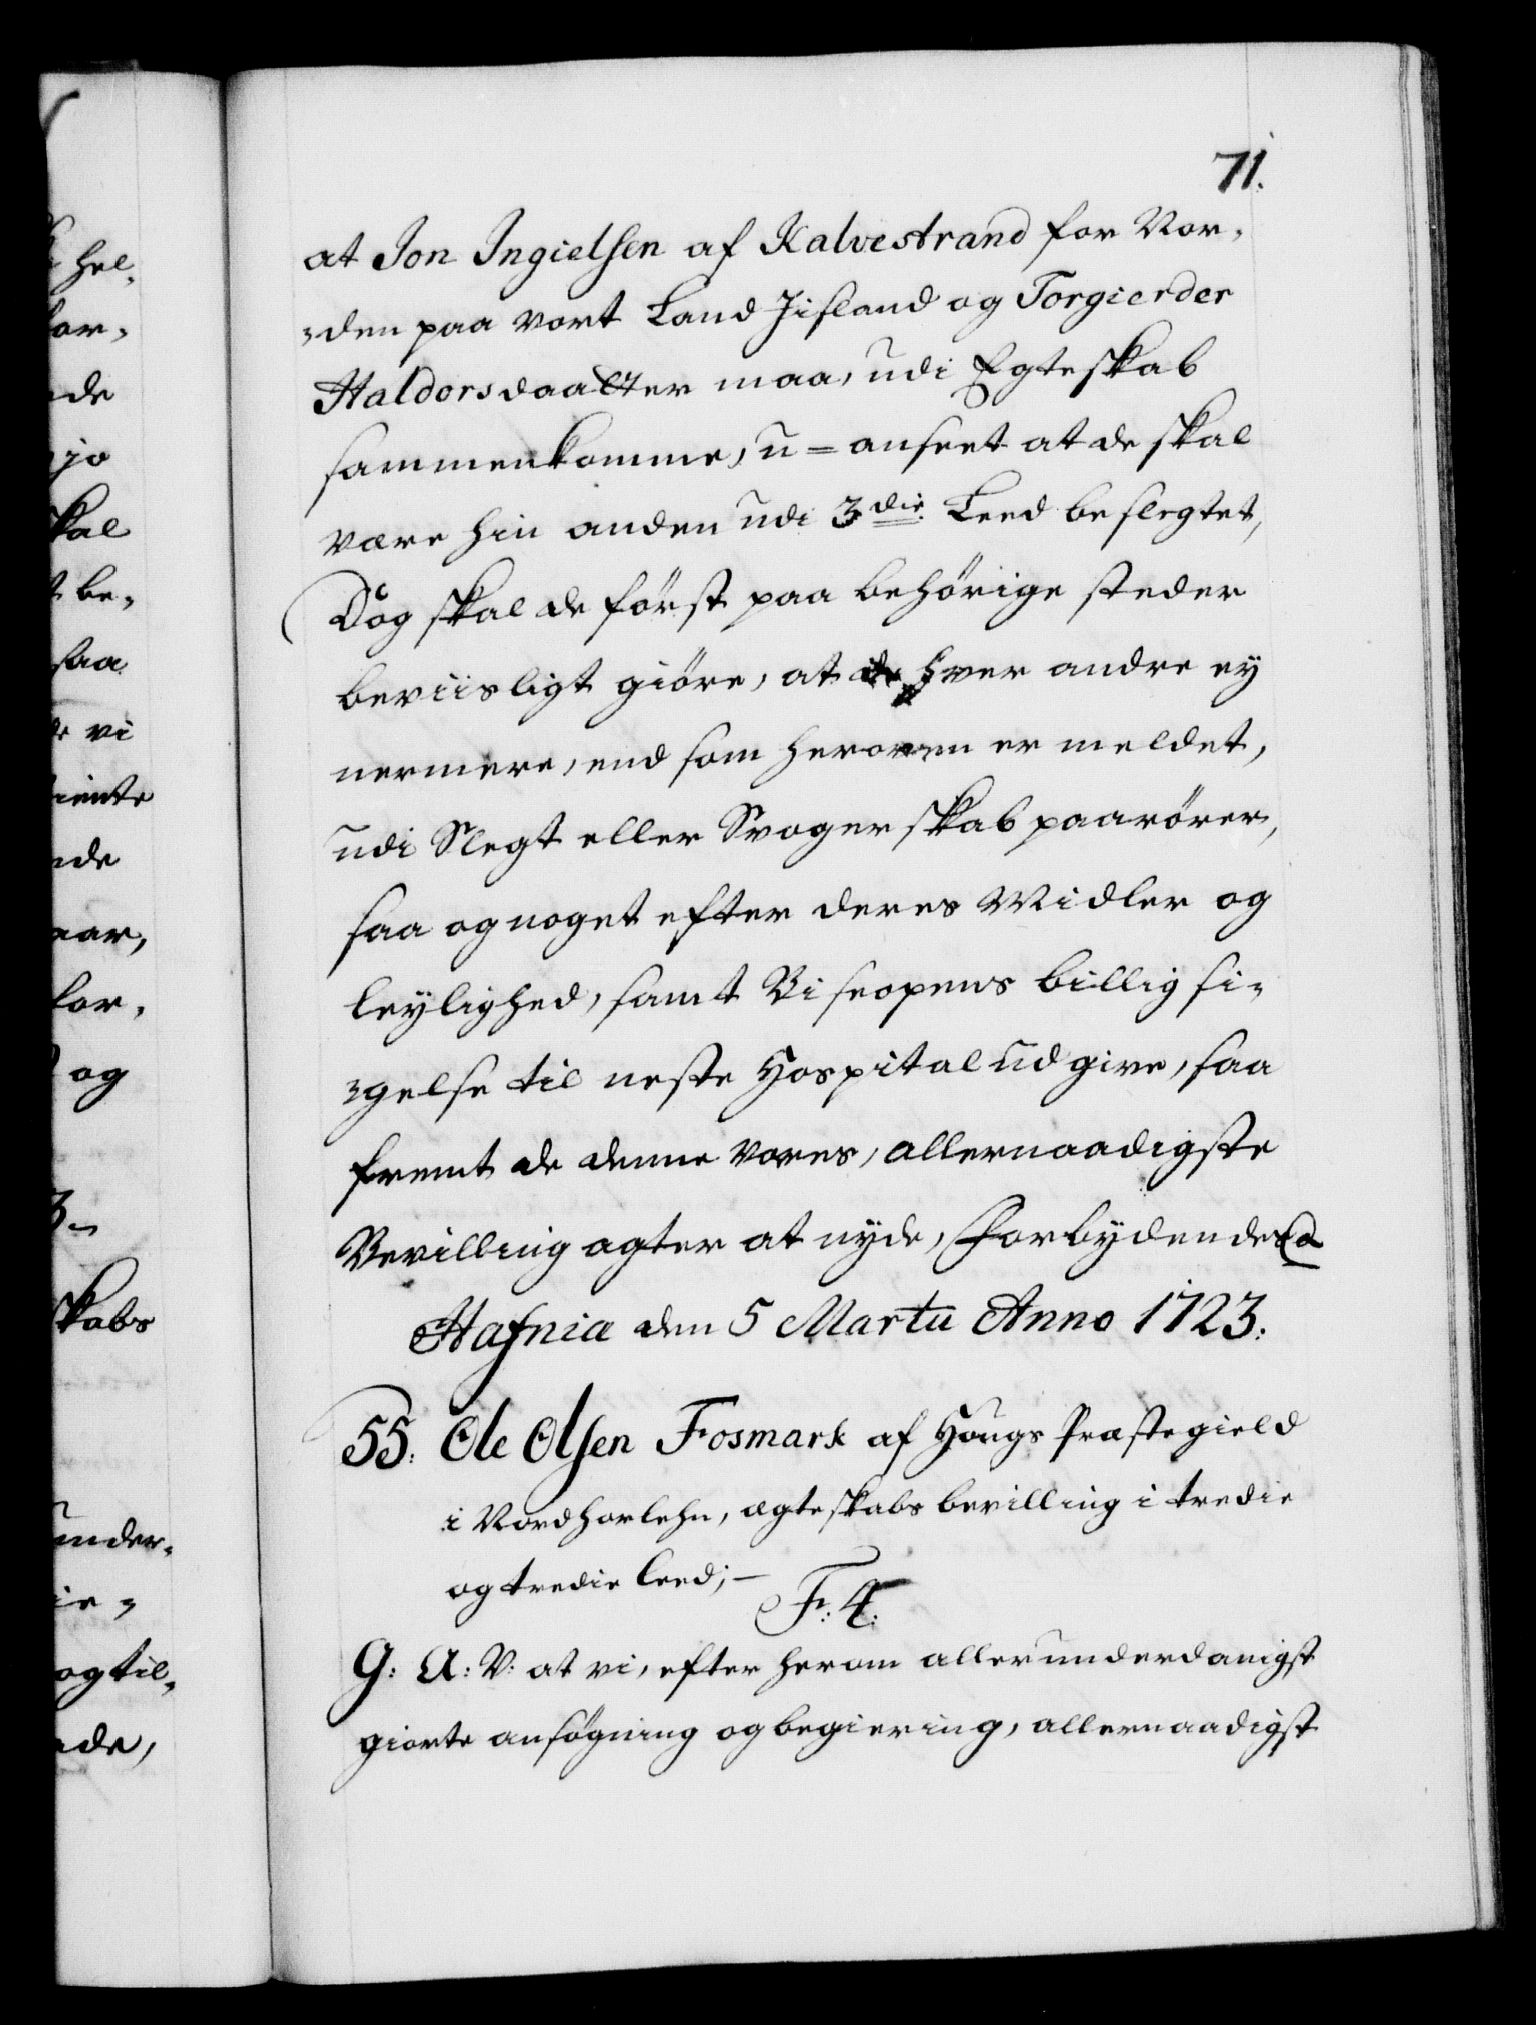 71.
at Jon Ingielsen af Kalvestrand for Nor-
-den paa vort Land Jisland og Torgierder
Haldorsdaatter maa, udi Egteskab
sammenkomme, u=anseet at de skal
være hin anden udi 3die Leed beslegtet,
Dog skal de först paa behörige steder
beviisligt giöre, at de hver andre ey
nermere, end som heroven er meldet,
udi Slegt eller Svogerskab paarörer,
saa og noget efter deres Midler og
leylighed, samt Biscopens billig si-
-gelse til neste Hospital udgive, saa
fremt de denne vores, allernaadigste
Bevilling agter at nyde, Forbydendes
Hafniæ den 5 Martii Anno 1723.
55. Ole Olsen Fosmark af Hougs Præstegield
i Nordhorlehn, ægteskabs bevilling i tredie
og tredie leed; -
F: 4:
G: A: V: at vi, efter herom allerunderdanigst
giorte ansögning og begiering, allernaadigst
hel-
for-
de
jo
skal
be-
saa
vi
de
for-
og
3-
skabs
under-
ie-
og til-
de,